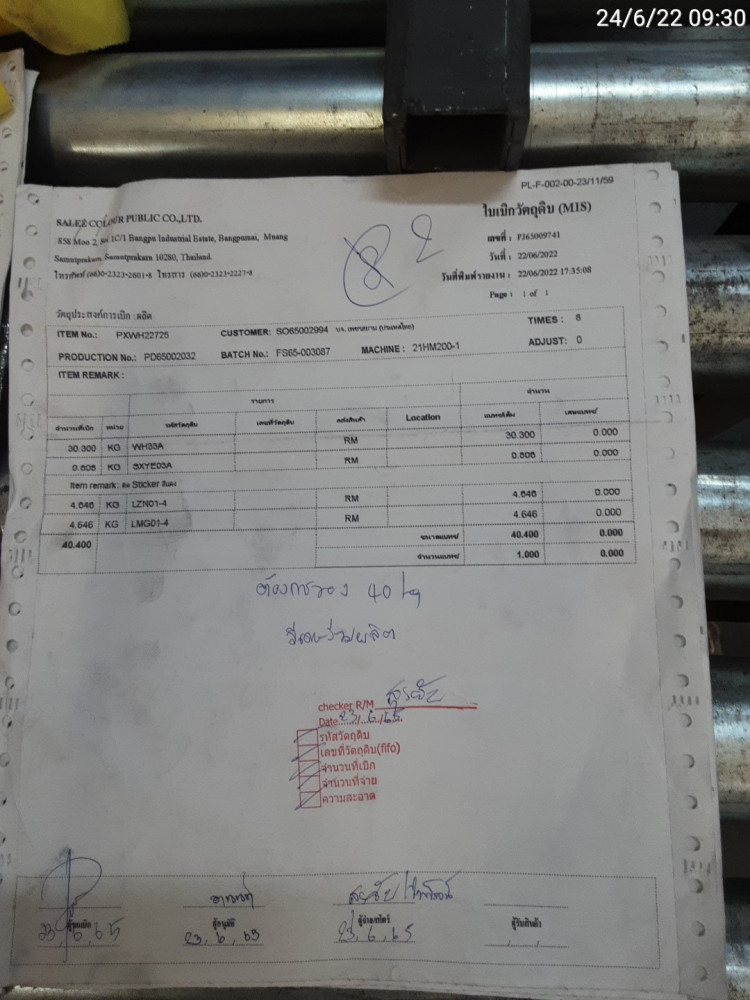 24/6/22 09:30
PL-F-002-00-23/11/59
SALEE COLOUR PUBLIC CO.,LTD.
ใบเบิกวัตถุดิบ (MIS)
858 Moo 2, Soi 1C/1 Bangpu Industrial Estate, Bangpumai, Muang
Samutprakarn, Samutprakarn 10280, Thailand.
โทรศัพท์ (660)-2323-2601-8 โทรสาร (660)-2323-2227-8
เลขที่ : PJ65009741
วันที่ : 22/06/2022
วันที่พิมพ์รายงาน : 22/06/2022 17:35:08
Page : 1 of 1
2
วัตถุประสงค์การเบิก : ผลิต
ITEM No.: PXWH22725 CUSTOMER: SO65002994 (ประเทศไทย) TIMES : 8
PRODUCTION No.: PD65002032 BATCH No.: FS65-003087 MACHINE : 21HM200-1 ADJUST: 0
ITEM REMARK :
รายการ จำนวน
จำนวนที่เบิก หน่วย รหัสวัตถุดิบ เลขที่วัตถุดิบ คลังสินค้า Location แบทช์เต็ม เศษแบทช์
30.300 KG WH33A RM 30.300 0.000
0.808 KG SXTE03A RM 0.808 0.000
Item remark : ติด Sticker สีแดง
4.646 KG LZN01-4 RM 4.646 0.000
4.646 KG LMG01-4 RM 4.646 0.000
40.400 ขนาดแบทช์ 40.400 0.000
จำนวนแบทช์ 1.000 0.000
ต้องการของ 40 kg
checker R/M
Date 23/6/65
รหัสวัตถุดิบ
เลขที่วัตถุดิบ(fifo)
จำนวนที่เบิก
จำนวนที่จ่าย
ความสะอาด
ผู้อนุมัติ ผู้รับสินค้า
23, 6, 65 23, 6, 65 23, 6, 65